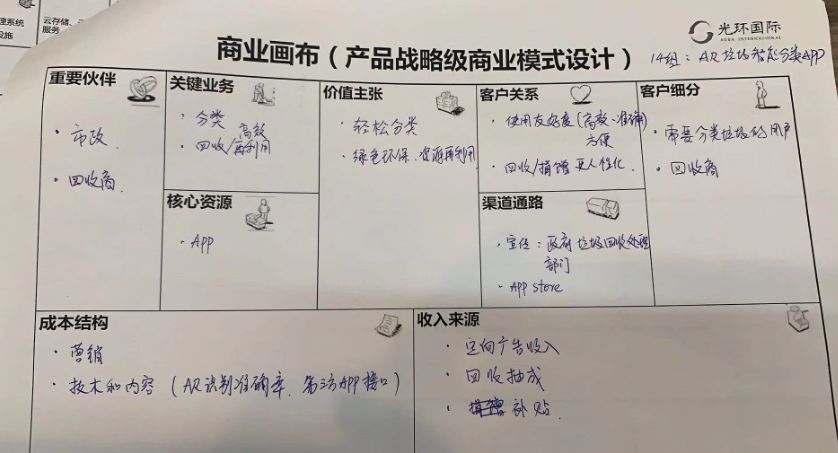 理系统
设施
云存储、
服务
光环国际
AURA INTERNATIONAL
商业画布（产品战略级商业模式设计）
14组：AR垃圾智能分类APP
重要伙伴
· 市政
· 回收商
关键业务
· 分类 高效
· 回收/再利用
核心资源
· App
价值主张
· 轻松分类
· 绿色环保、资源再利用
客户关系
· 使用友好度（高效、准确）
方便
· 回收/捐赠 更人性化
渠道通路
· 宣传：政府垃圾回收处理
部门
· App store
客户细分
· 需要分类垃圾的用户
· 回收商
成本结构
· 营销
· 技术和内容（AR识别准确率、第三方APP接口）
收入来源
· 定向广告收入
· 回收抽成
· 补贴